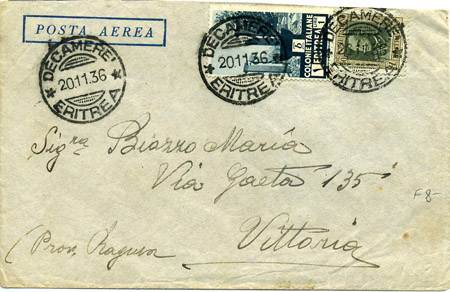 POSTA AEREA
DECAMERE'
20.11.36
ERITREA
COLONIE ITALIANE
ERITREA
DECAMERE'
20.11.36
ERITREA
DECAMERE'
ERITREA
Sig.ra Biazzo Maria
Via Gaeta 135
F8-
Vittoria
(Prov. Ragusa